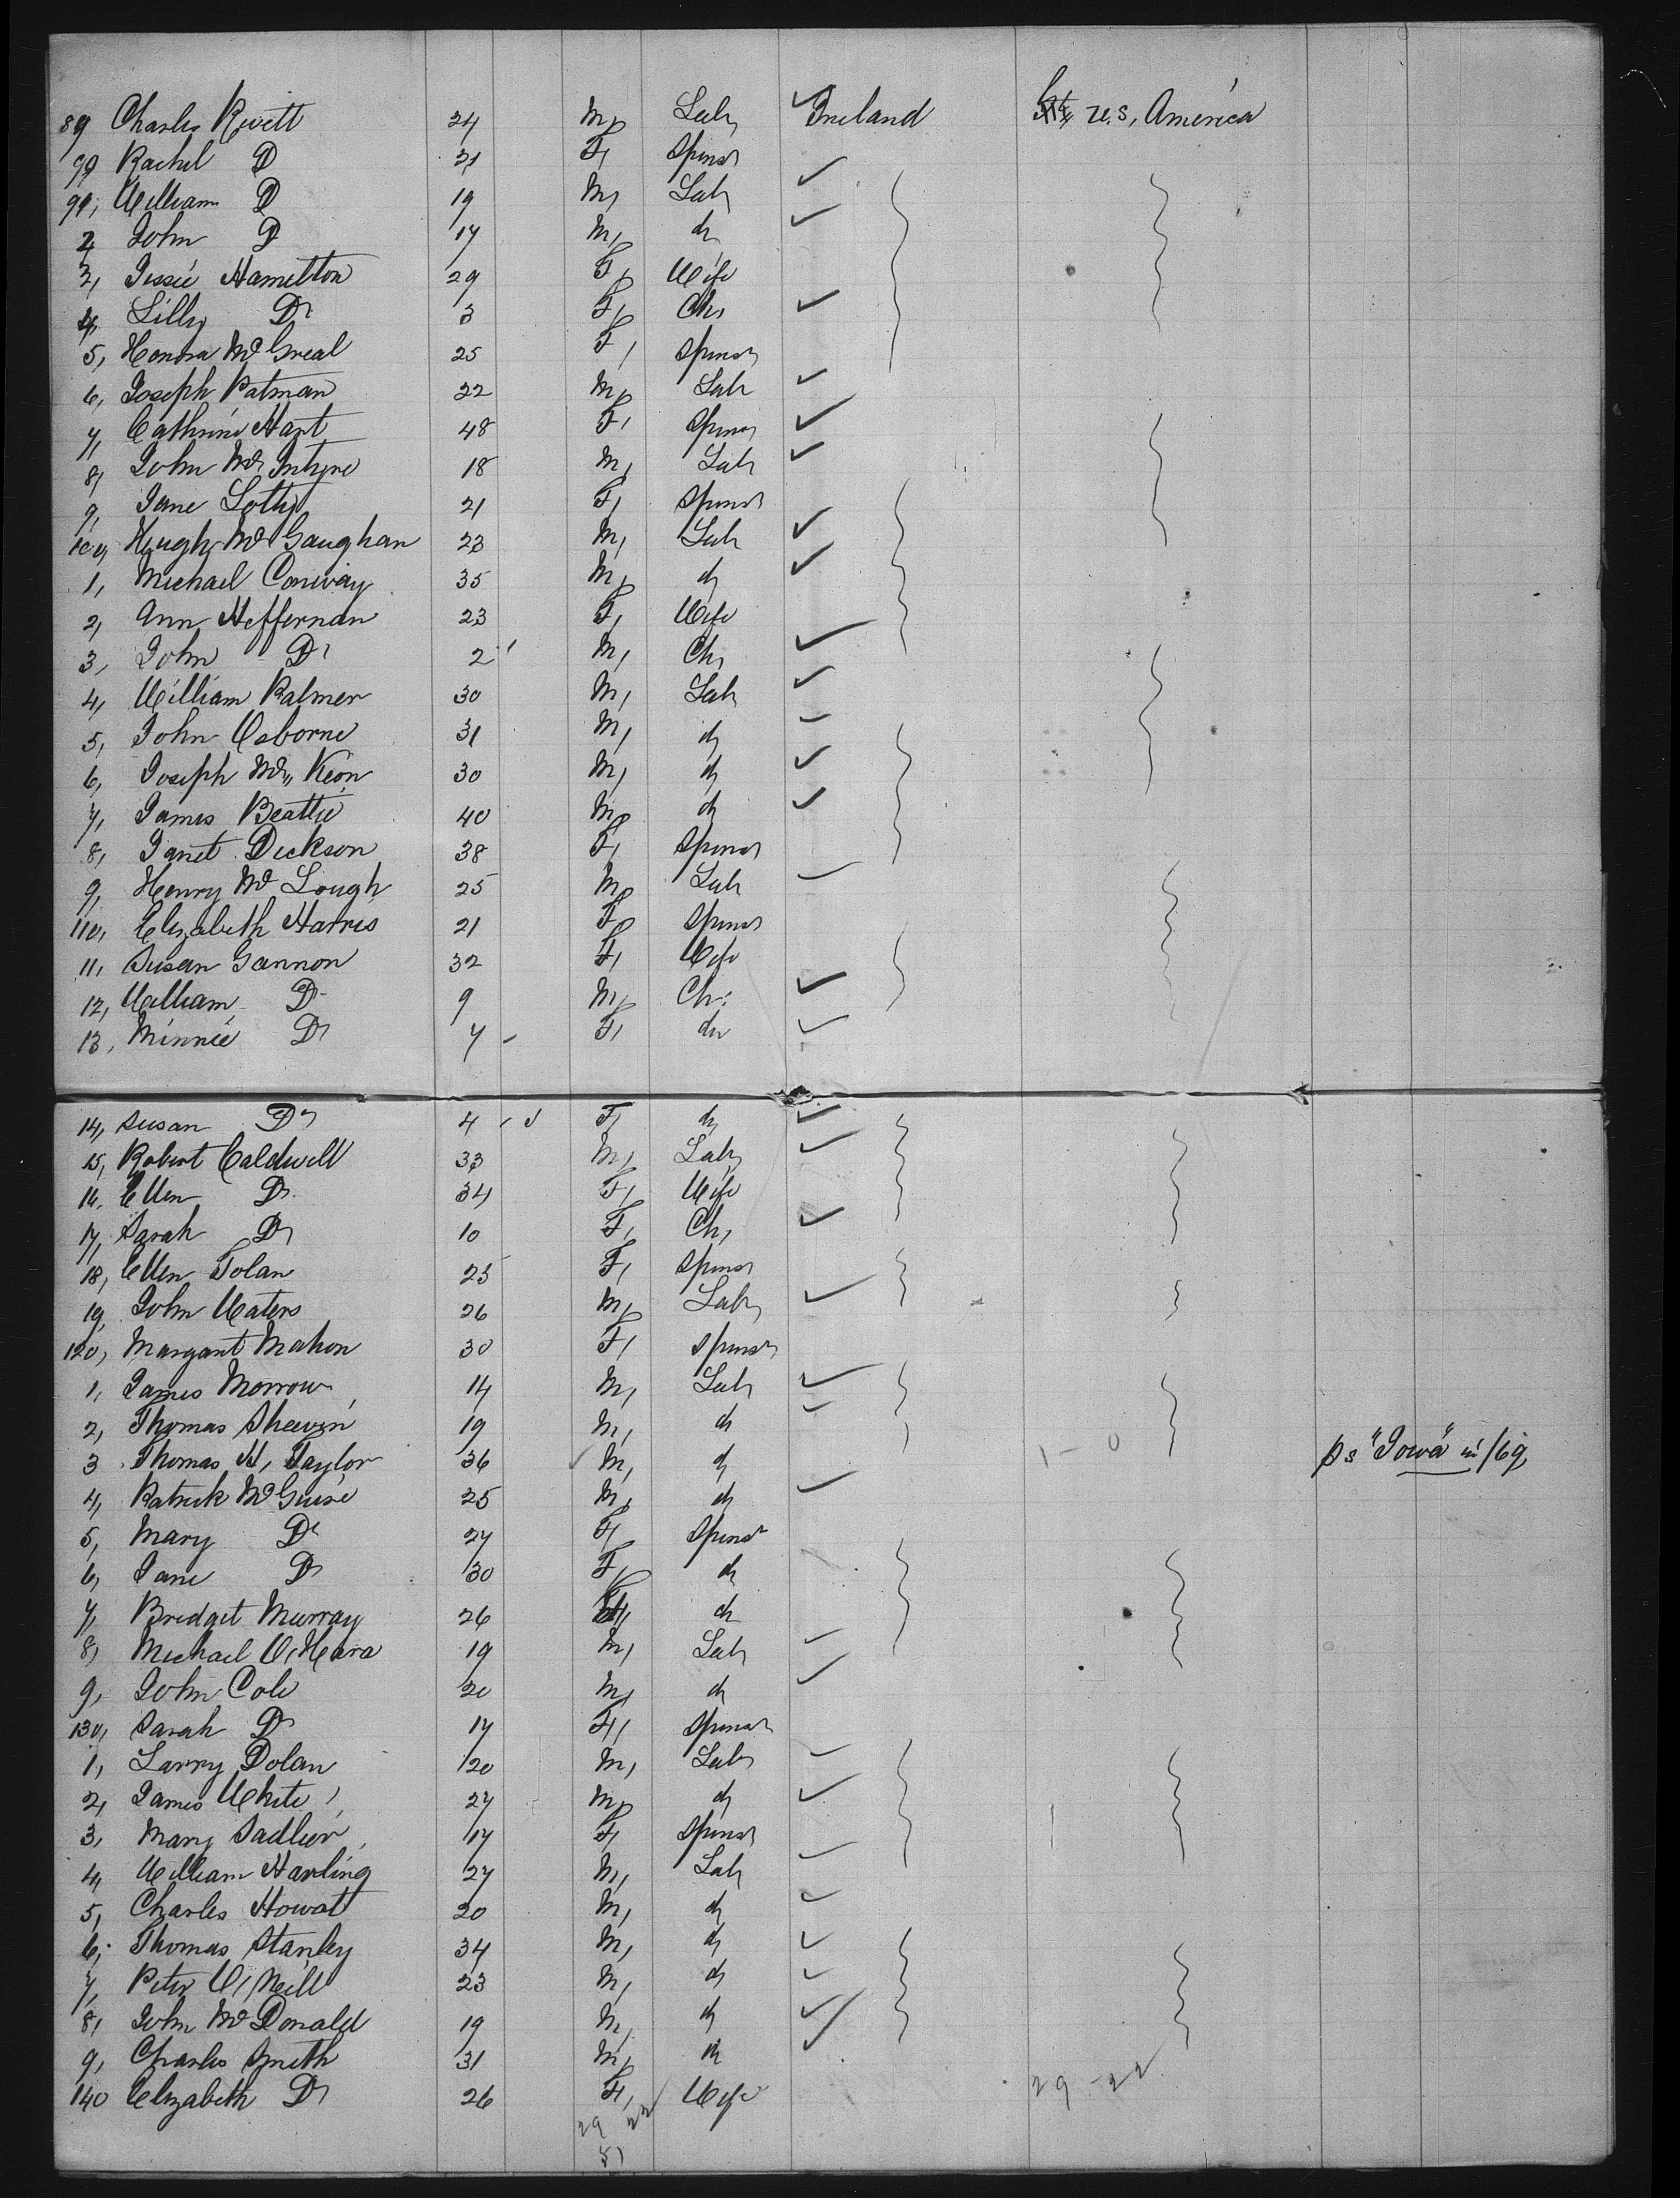 89 Charles Rivett 24 M, Lab, Ireland U.S. America
90 Rachel D 21 F, Spinsr
91, William D 19 M, Labr
2, John D 17 M, do
3, Jessie Hamilton 29 F, Wife
4, Lilly Do 3 F, Ch,
5, Honora McGreal 25 F, Spinsr
6, Joseph Patman 22 M, Labr
7, Cathrine Hart 48 F, Spinsr
8, John McIntyre 18 M, Labr
9, Jane Lotty 21 F, Spinsr
100, Hugh McGaughan 23 M, Labr
1, Michael Conway 35 M, do
2, Ann Heffernan 23 F, Wife
3, John Do 2 M, Ch,
4, William Palmer 30 M, Labr
5, John Osborne 31 M, do
6, Joseph McKeon 30 M, do
7, James Beattie 40 M, do
8, Janet Dickson 38 F, Spinsr
9, Henry McLough 25 M, Labr
110, Elizabeth Harris 21 F, Spinsr
11, Susan Gannon 32 F, Wife
12, William D 9 M, Ch,
13, Minnie Do 7 F, do
14, Susan Do 4 F, do
15, Robert Caldwell 33 M, Labr
16, Ellen Do 34 F, Wife
17, Sarah Do 10 F, Ch,
18, Ellen Tolan 25 F, Spinsr
19, John Waters 26 M, Labr
120, Margaret Mahon 30 F, Spinsr
1, James Morrow 14 M, Labr
2, Thomas Shevin 19 M, do
3 Thomas H, Taylor 36 M, do 1 - 0 ps "Iowa" in /69,
4, Patrick McGuire 25 M, do
5, Mary Do 27 F, Spinsr
6, Jane Do 30 F, do
7, Bridget Murray 26 F, do
8, Michael O'Hara 19 M, Labr
9, John Cole 20 M, do
130, Sarah Do 17 F, Spinsr
1, Larry Dolan 20 M, Labr
2, James White 27 M, do
3, Mary Sadlier 17 F, Spinsr
4, William Harling 27 M, Labr
5, Charles Howatt 20 M, do
6, Thomas Stanley 34 M, do
7, Peter O'Neill 23 M, do
8, John McDonald 19 M, do
9, Charles Smith 31 M, do
140 Elizabeth Do 26 F, Wife 29 - 22
29 22
51